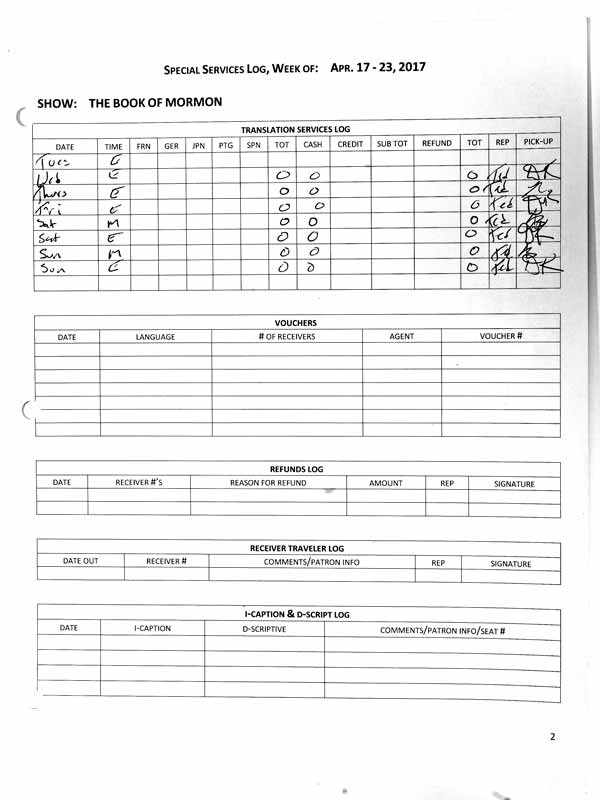 SPECIAL SERVICES LOG, WEEK OF: APR. 17 - 23, 2017
SHOW: THE BOOK OF MORMON
TRANSLATION SERVICES LOG
DATE TIME FRN GER JPN PTG SPN TOT CASH CREDIT SUB TOT REFUND TOT REP PICK-UP
Tues E
Wed E 0 0 0 Ted DK
Thurs E 0 0 0 Ted
Fri E 0 0 0 Ted
Sat M 0 0 0 Ted
Sat E 0 0 0 Ted DK
Sun M 0 0 0 Ted
Sun E 0 0 0 Ted DK
VOUCHERS
DATE LANGUAGE # OF RECEIVERS AGENT VOUCHER #
REFUNDS LOG
DATE RECEIVER #'S REASON FOR REFUND AMOUNT REP SIGNATURE
RECEIVER TRAVELER LOG
DATE OUT RECEIVER # COMMENTS/PATRON INFO REP SIGNATURE
I-CAPTION & D-SCRIPT LOG
DATE I-CAPTION D-SCRIPTIVE COMMENTS/PATRON INFO/SEAT #
2